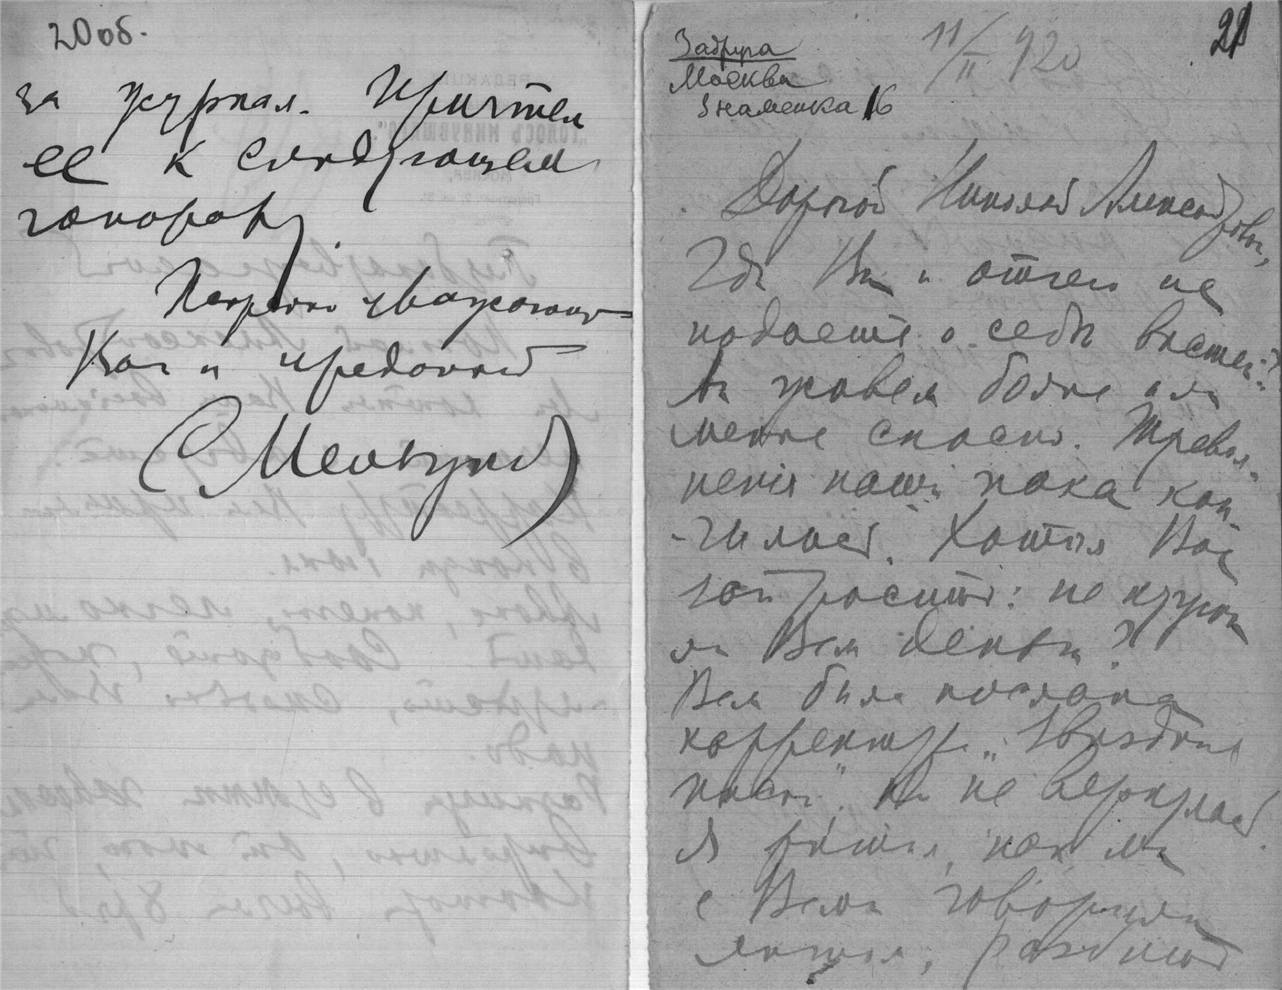 20 об.
за журнал. Причтем
ее к следующему
гонорару.
Искренно уважающий
Вас и преданный
С Мельгунов
21
Задруга
Москва
Знаменка 16
11/II 920
Дорогой Николай Александрович,
Где Вы и отчего не
подаете о себе вестей?
Мы живем более или
менее сносно. Треволнения
наши пока кон-
чились. Хотел Вас
спросить: не нужны
ли Вам деньги?
Вам была послана
корректура „Звездные
песни". Она не вернулась.
Я решил, как мы
с Вами говорили
летом, разбить